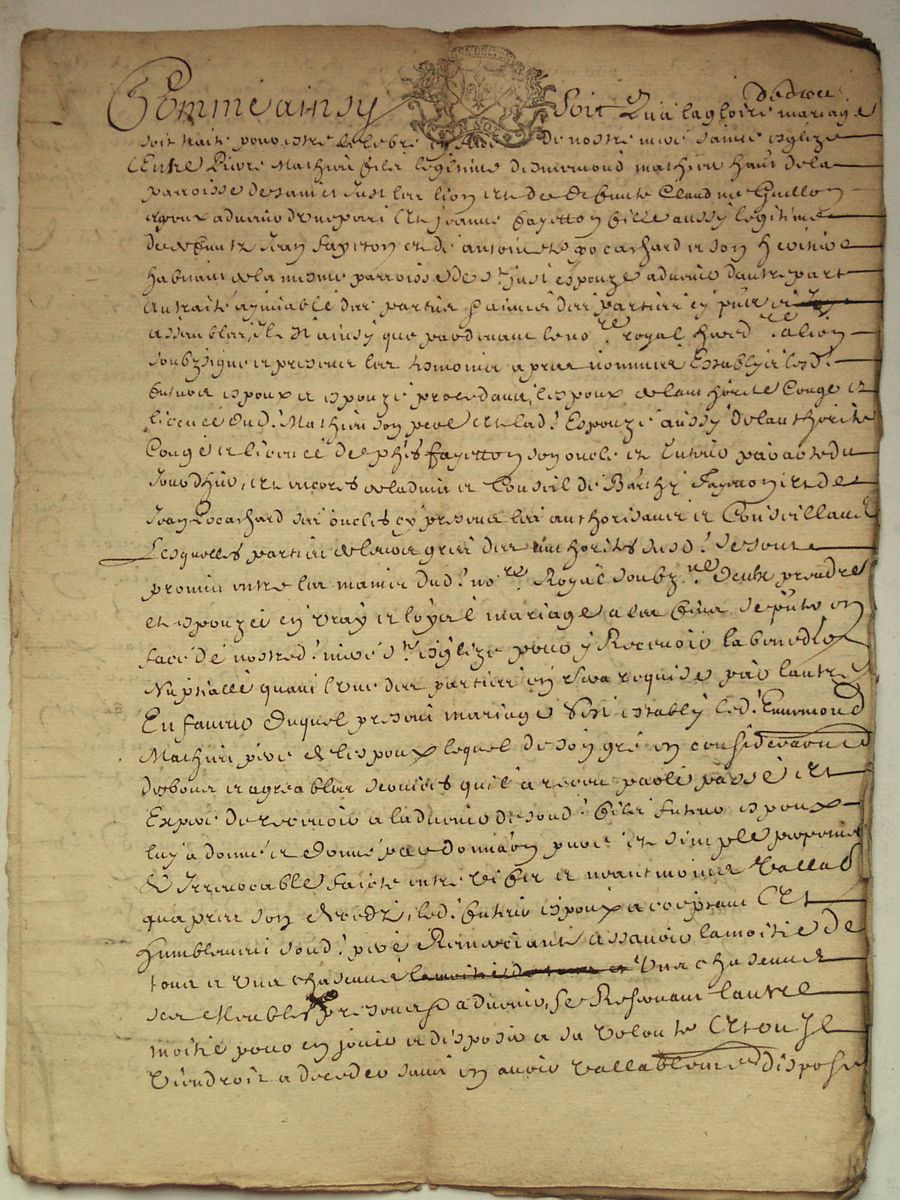 de dieu
Comme ainsy soit Qua la gloire mariage
soit traité pour estre celebré en face de nostre mere sainte esglize
Entre Pierre Mathieu fils legitime d'Ennemond mathieu hant de la
parroisse de saint Just et de deffunte Claudine Guillon
espoux aduenir d'une part Et Jeanne fayetton fille aussy legitime
de deffuntz Jean fayetton et de antoinette pocachard
habitant de la mesme parroisse de st Just espouze aduenir dautre part
Au traité aymiable des parties
assemblées, Il est ainsy que par deuant le nore royal
soubzsigné et presents les tesmoins apres nommes Establys led.
futurs espoux et espouze procedant, lespoux de lauthorité Congé et
licence dud. Mathieu son pere et lad. Espouze aussy de lauthorité
Congé et licence de phis fayetton son oncle et
et encores de ladvis et Conseil de Barthy fayetton et de
Jean pocachard ses oncles cy presents les authorisant et Conseillant
Lesquelles parties de leur gré des authorités susd. se sont
promis entre les mains dud. nore Royal soubzne de se prendre
et espouzer en vray et loyal mariage a ces fins se pnter en
face de nostred. mere ste esglize pour y Receuoir la benedion
Nuptialle quant l'une des parties en sera requise par lautre
En faueur duquel present mariage s'est establý led. Ennemond
Mathieu pere de lespoux lequel de son gré en consideraon
des bons et agreables seruices qu'il a receu par le passé et
Espere de receuoir a laduenir de sond. fils futur espoux
luy a donné et donne par donnaon pure et simple
& Irreuocable faicte entre vifs et neantmoins Vallable
quapres son decedz led. futur espoux acceptant Et
humblement sond. pere Remerciant assauoir la moitié de
tous et vns chascuns vns chascuns
ses Meubles presents & aduenir, se Reseruant lautre
moitié pour en jouir et disposer a sa volonté Et ou Il
viendroit a deceder sans en auoir vallablement disposé